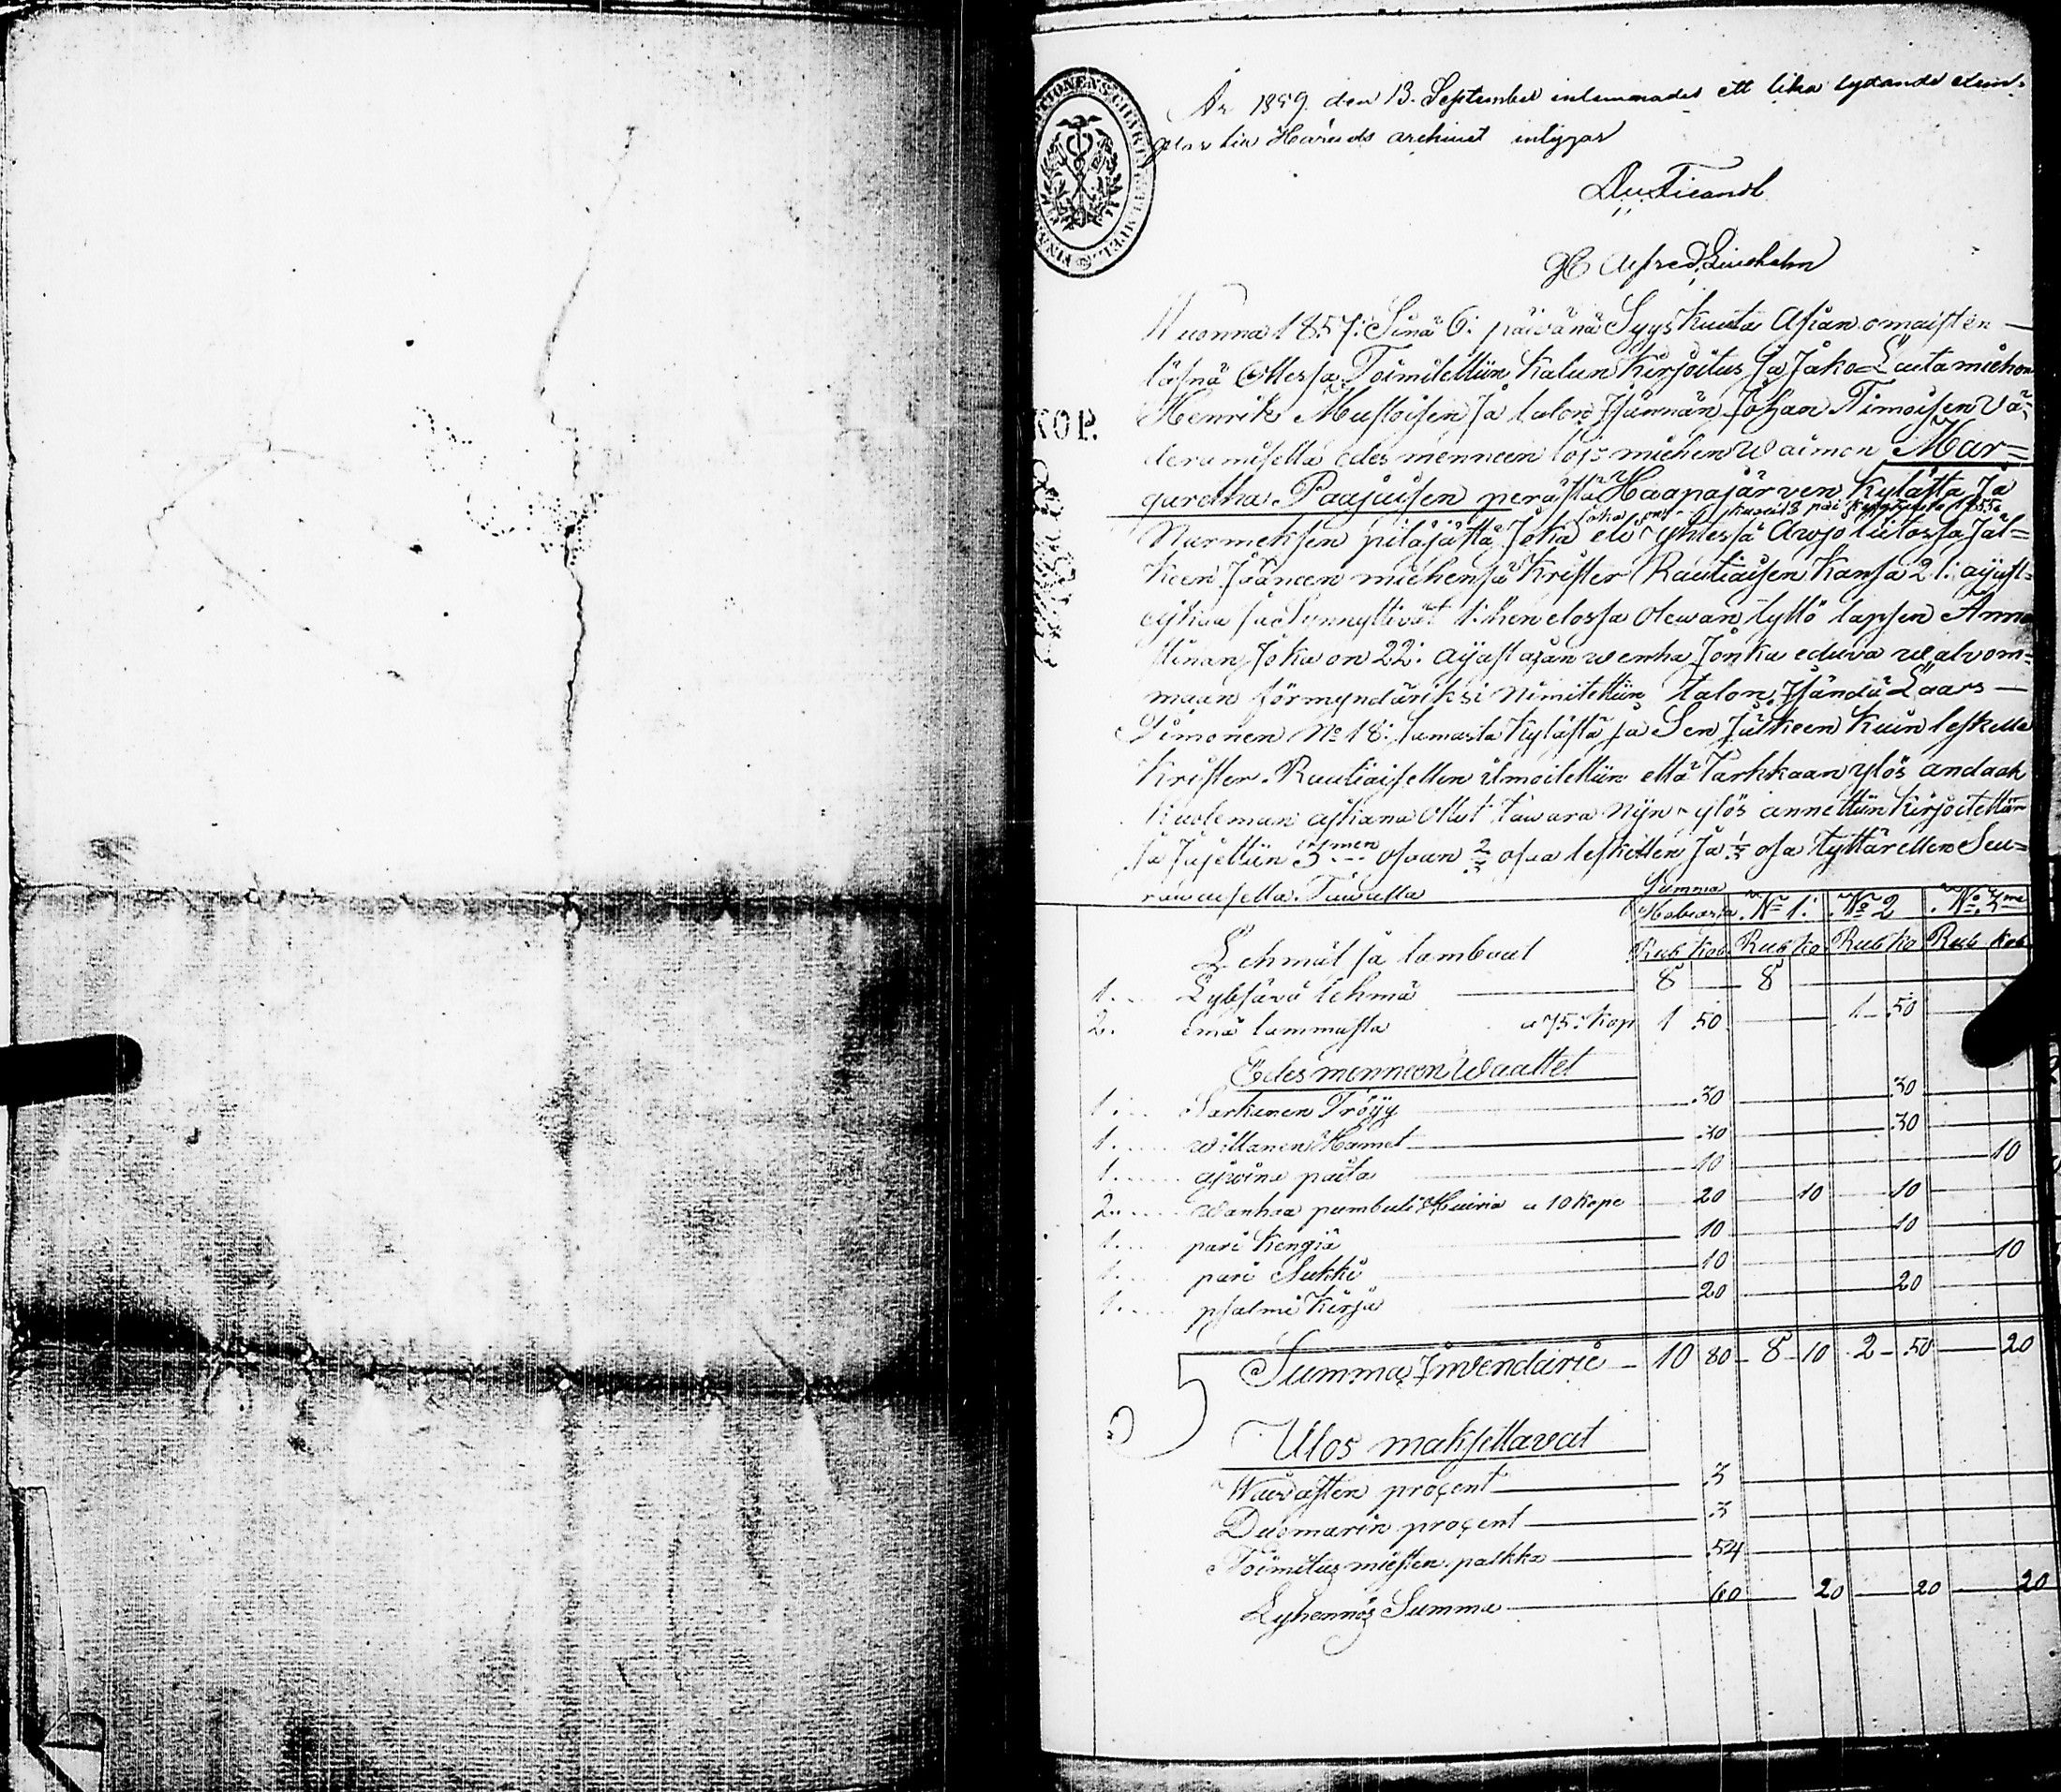 År 1859 den 13. September inlemnades ett lika lydande exem-
plar hä Härads archivet intygar
Ex officio
H Alfred Lindholm
KOP.
Wuonna 1857: Sinä 6: päivänä Syys Kuuta Asian omaisten
läsnä Ollessa Toimitettiin Kalun Kirjoitus Ja Jako Lautamiehen
Henrik Mustoisen Ja talon Isännän Johan Timoisen Vä-
deramisella edes menneen lois miehen Waimon Mar=
garetha Paajuisen perästä Haapajärven Kylästä Ja
Nurmeksen pitäjästä Joka eli yhtessä Awjo liitossa Jäl=
keen Jääneen miehensä Krister Rautiaisen Kansa 21: ajast=
ajkaa Ja Synnyttivät 1: hen elossa Olewan tyttö lapsen Anna
Stinan Joka on 22: ajast ajan wenha Jonka eduva walvom=
maan förmyndäriksi Nimitettiin talon Isändä Laars
Timonen No 18: samasta Kylästä ja Sen Jälkeen Kuin leskelle
Krister Rautiaisellen ilmoitettiin että Tarkkaan ylös andaak
Kuoleman ajkana Ollut tawara Niin ylös annettiin Kirjoitettiin
Ja Jajettiin 3 men osaan 2/3 osaa leskellen Ja 1/3 osa tyttärellen Seu=
rawaisella Tawalla
Summa
Hobiasa No 1: No 2 No 3me
Rub Kob Rub Ko Rub Ko Rub Kob
Lehmät ja lambaat
1. Lybsävä lehmä 8 8
2. emä lammasta a 75: Kop 1 50 1 50
Edes menneen Waattet
1 Sarkanen Tröijy 30 30
1 willanen Hamet 30 30
1 ajwina paita 10 10
2 wanhaa pumbuli Huivia a 10 Kope 20 10 10
1 pari Kengiä 10 10
1 pari Sukki 10 10
1 psalmi Kirja 20 20
Summa Inwendarie 10 80 8 10 2 50 20
Ulos maksettavat
Waivasten proçent 3
Duomarin proçent 3
Toimitus miesten palkka 54
Lyhennös Summa 60 20 20 20